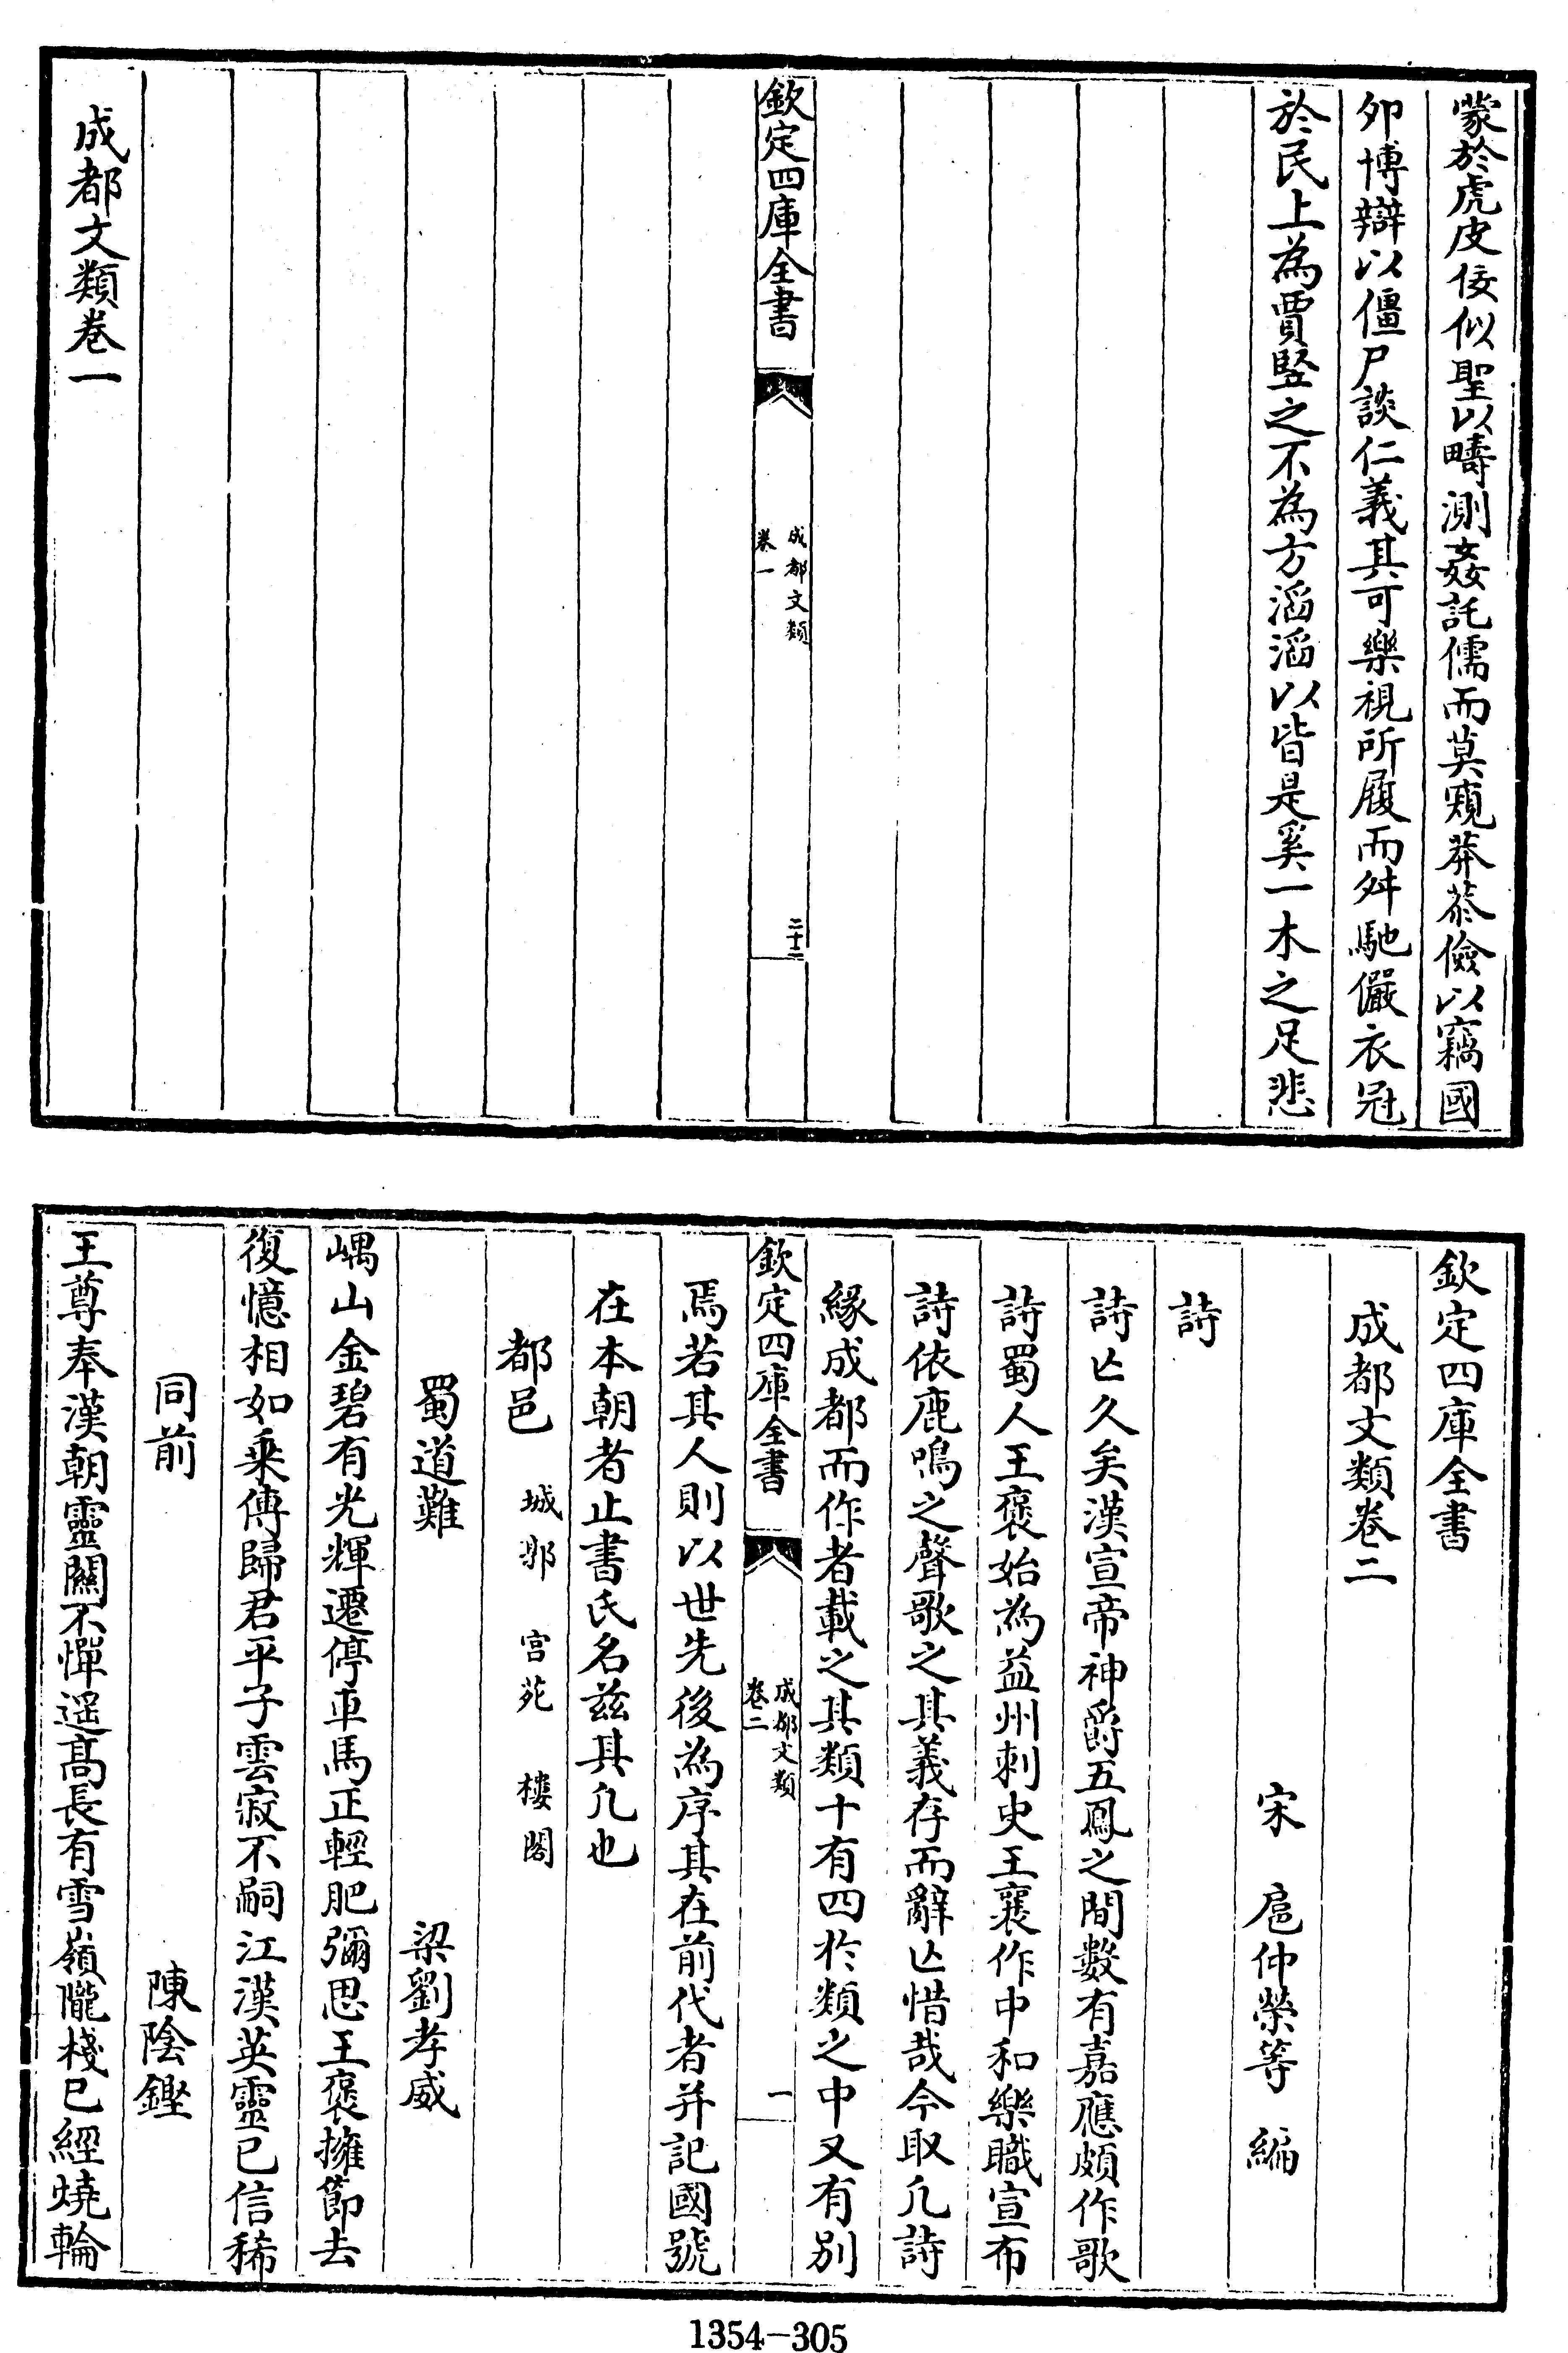 蒙於虎皮佞似聖以疇測姦託儒而莫窺莽恭儉以竊國
夘博辯以僵尸談仁義其可樂視所履而舛馳儼衣冠
於民上為賈豎之不為方滔滔以皆是奚一木之足悲
欽定四庫全書
成都文類
卷一
二十二
成都文類卷一
欽定四庫全書
成都文類卷二
宋 扈仲榮等 編
詩
詩亡久矣漢宣帝神爵五鳳之間數有嘉應頗作歌
詩蜀人王褒始為益州刺史王襄作中和樂職宣布
詩依鹿鳴之聲歌之其義存而辭亡惜哉今取凡詩
緣成都而作者載之其類十有四於類之中又有別
欽定四庫全書
成都文類
卷二
一
焉若其人則以世先後為序其在前代者并記國號
在本朝者止書氏名茲其凡也
都邑 城郭 宫苑 樓閣
蜀道難 梁劉孝威
嵎山金碧有光輝遷停車馬正輕肥彌思王褒擁節去
復憶相如乘傳歸君平子雲寂不嗣江漢英靈已信稀
同前 陳陰鏗
王尊奉漢朝靈關不憚遥髙長有雪嶺隴棧已經燒輪
1354-305